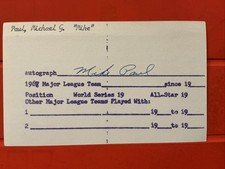 Paul, Michael G. "Mike"
autograph Mike Paul
1968 Major League Team since 19
Position World Series 19 All-Star 19
Other Major League Teams Played With:
1 19 to 19
2 19 to 19